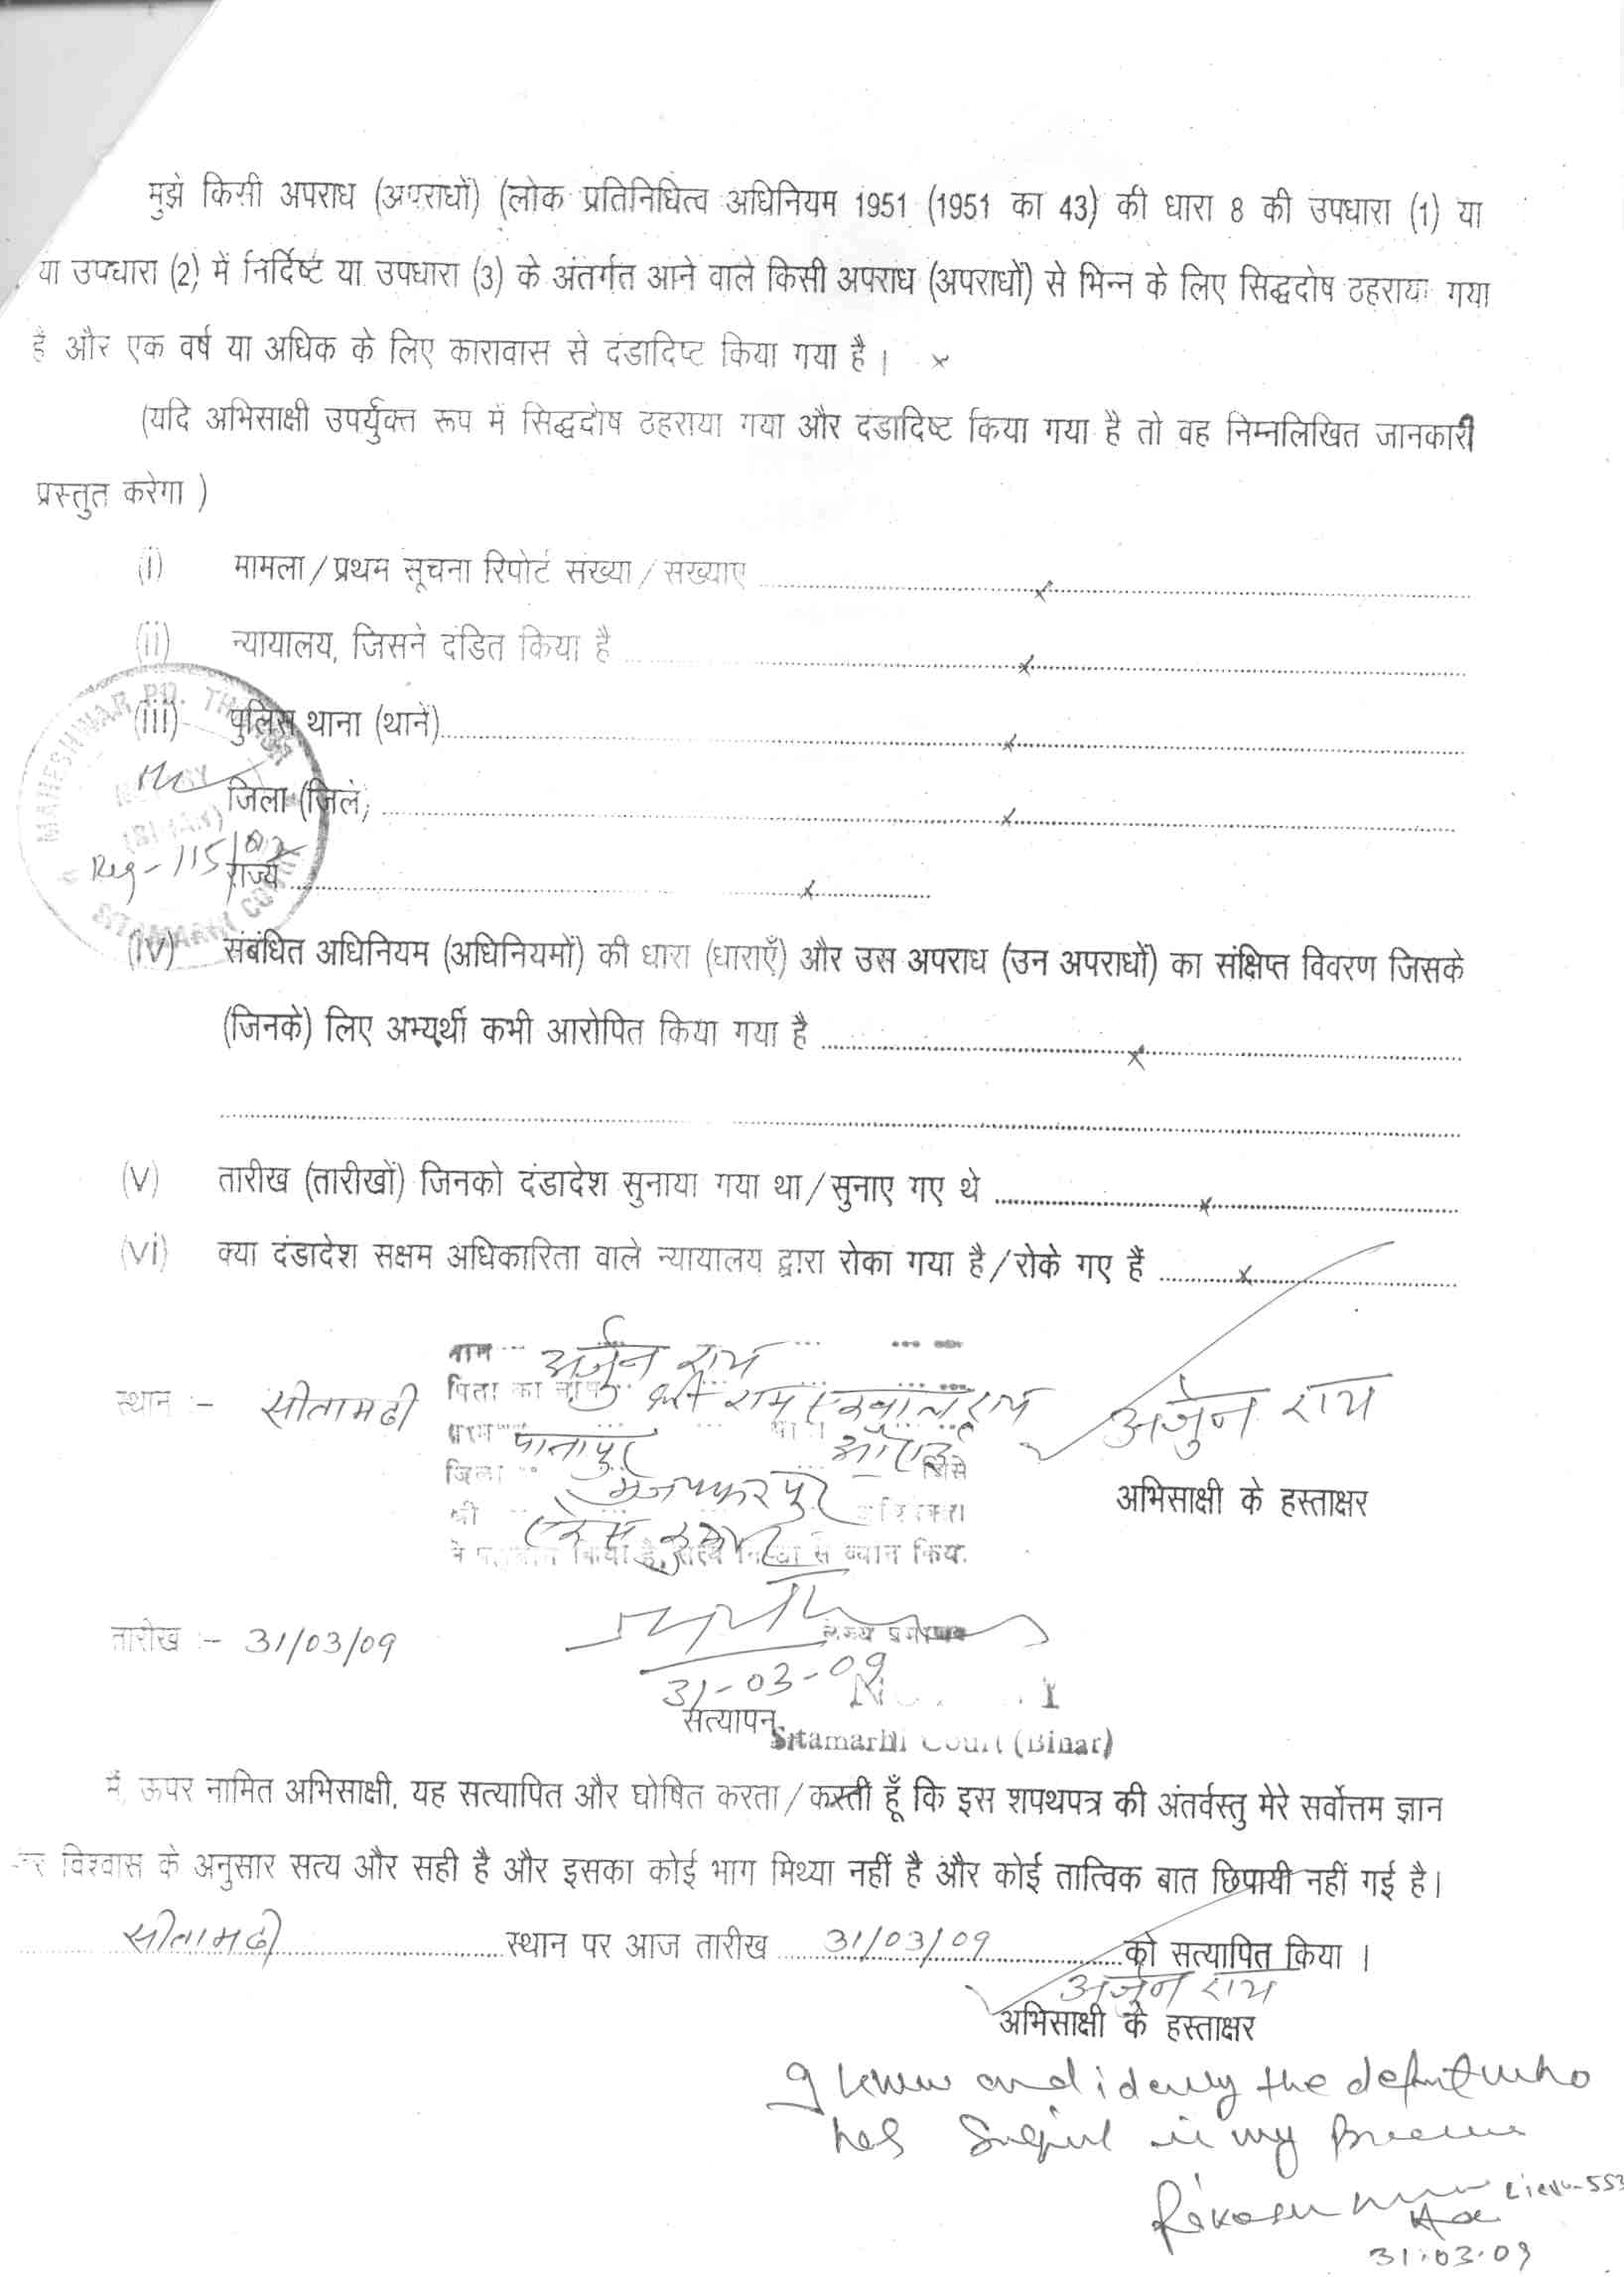 मुझे किसी अपराध (अपराधों) (लोक प्रतिनिधित्व अधिनियम 1951 (1951 का 43) की धारा 8 की उपधारा (1) या
या उपधारा (2) में निर्दिष्ट या उपधारा (3) के अंतर्गत आने वाले किसी अपराध (अपराधों) से भिन्न के लिए सिद्धदोष ठहराया गया
है और एक वर्ष या अधिक के लिए कारावास से दंडादिष्ट किया गया है। ×
(यदि अभिसाक्षी उपर्युक्त रूप में सिद्धदोष ठहराया गया और दंडादिष्ट किया गया है तो वह निम्नलिखित जानकारी
प्रस्तुत करेगा)
(i) मामला/प्रथम सूचना रिपोर्ट संख्या/संख्याए ..... × .....
(ii) न्यायालय, जिसने दंडित किया है ..... × .....
(iii) पुलिस थाना (थाने) ..... × .....
जिला (जिले) ..... × .....
राज्य ..... × .....
MAHESHWAR PD. TH
Reg- 115/02
SITAMARHI COURT
(iv) संबंधित अधिनियम (अधिनियमों) की धारा (धाराएँ) और उस अपराध (उन अपराधों) का संक्षिप्त विवरण जिसके
(जिनके) लिए अभ्यर्थी कभी आरोपित किया गया है ..... × .....
(v) तारीख (तारीखों) जिनको दंडादेश सुनाया गया था/सुनाए गए थे ..... × .....
(vi) क्या दंडादेश सक्षम अधिकारिता वाले न्यायालय द्वारा रोका गया है/रोके गए हैं ..... × .....
नाम अर्जुन राय
स्थान :- सीतामढी
पिता का नाम श्री राम एकबाल राय
अर्जुन राय
ग्राम पातापुर औराई
जिला मुजफ्फरपुर जिसे
अभिसाक्षी के हस्ताक्षर
श्री कुमार
ने पहचान किया है, सत्य निष्ठा से ब्यान किय.
तारीख :- 31/03/09
31-03-09
सत्यापन
Sitamarhi Court (Bihar)
मैं, ऊपर नामित अभिसाक्षी, यह सत्यापित और घोषित करता/करती हूँ कि इस शपथपत्र की अंतर्वस्तु मेरे सर्वोत्तम ज्ञान
और विश्वास के अनुसार सत्य और सही है और इसका कोई भाग मिथ्या नहीं है और कोई तात्विक बात छिपायी नहीं गई है।
सीतामढी स्थान पर आज तारीख 31/03/09 को सत्यापित किया।
अर्जुन राय
अभिसाक्षी के हस्ताक्षर
I know and identify the deponent who
has signed in my presence
31.03.09